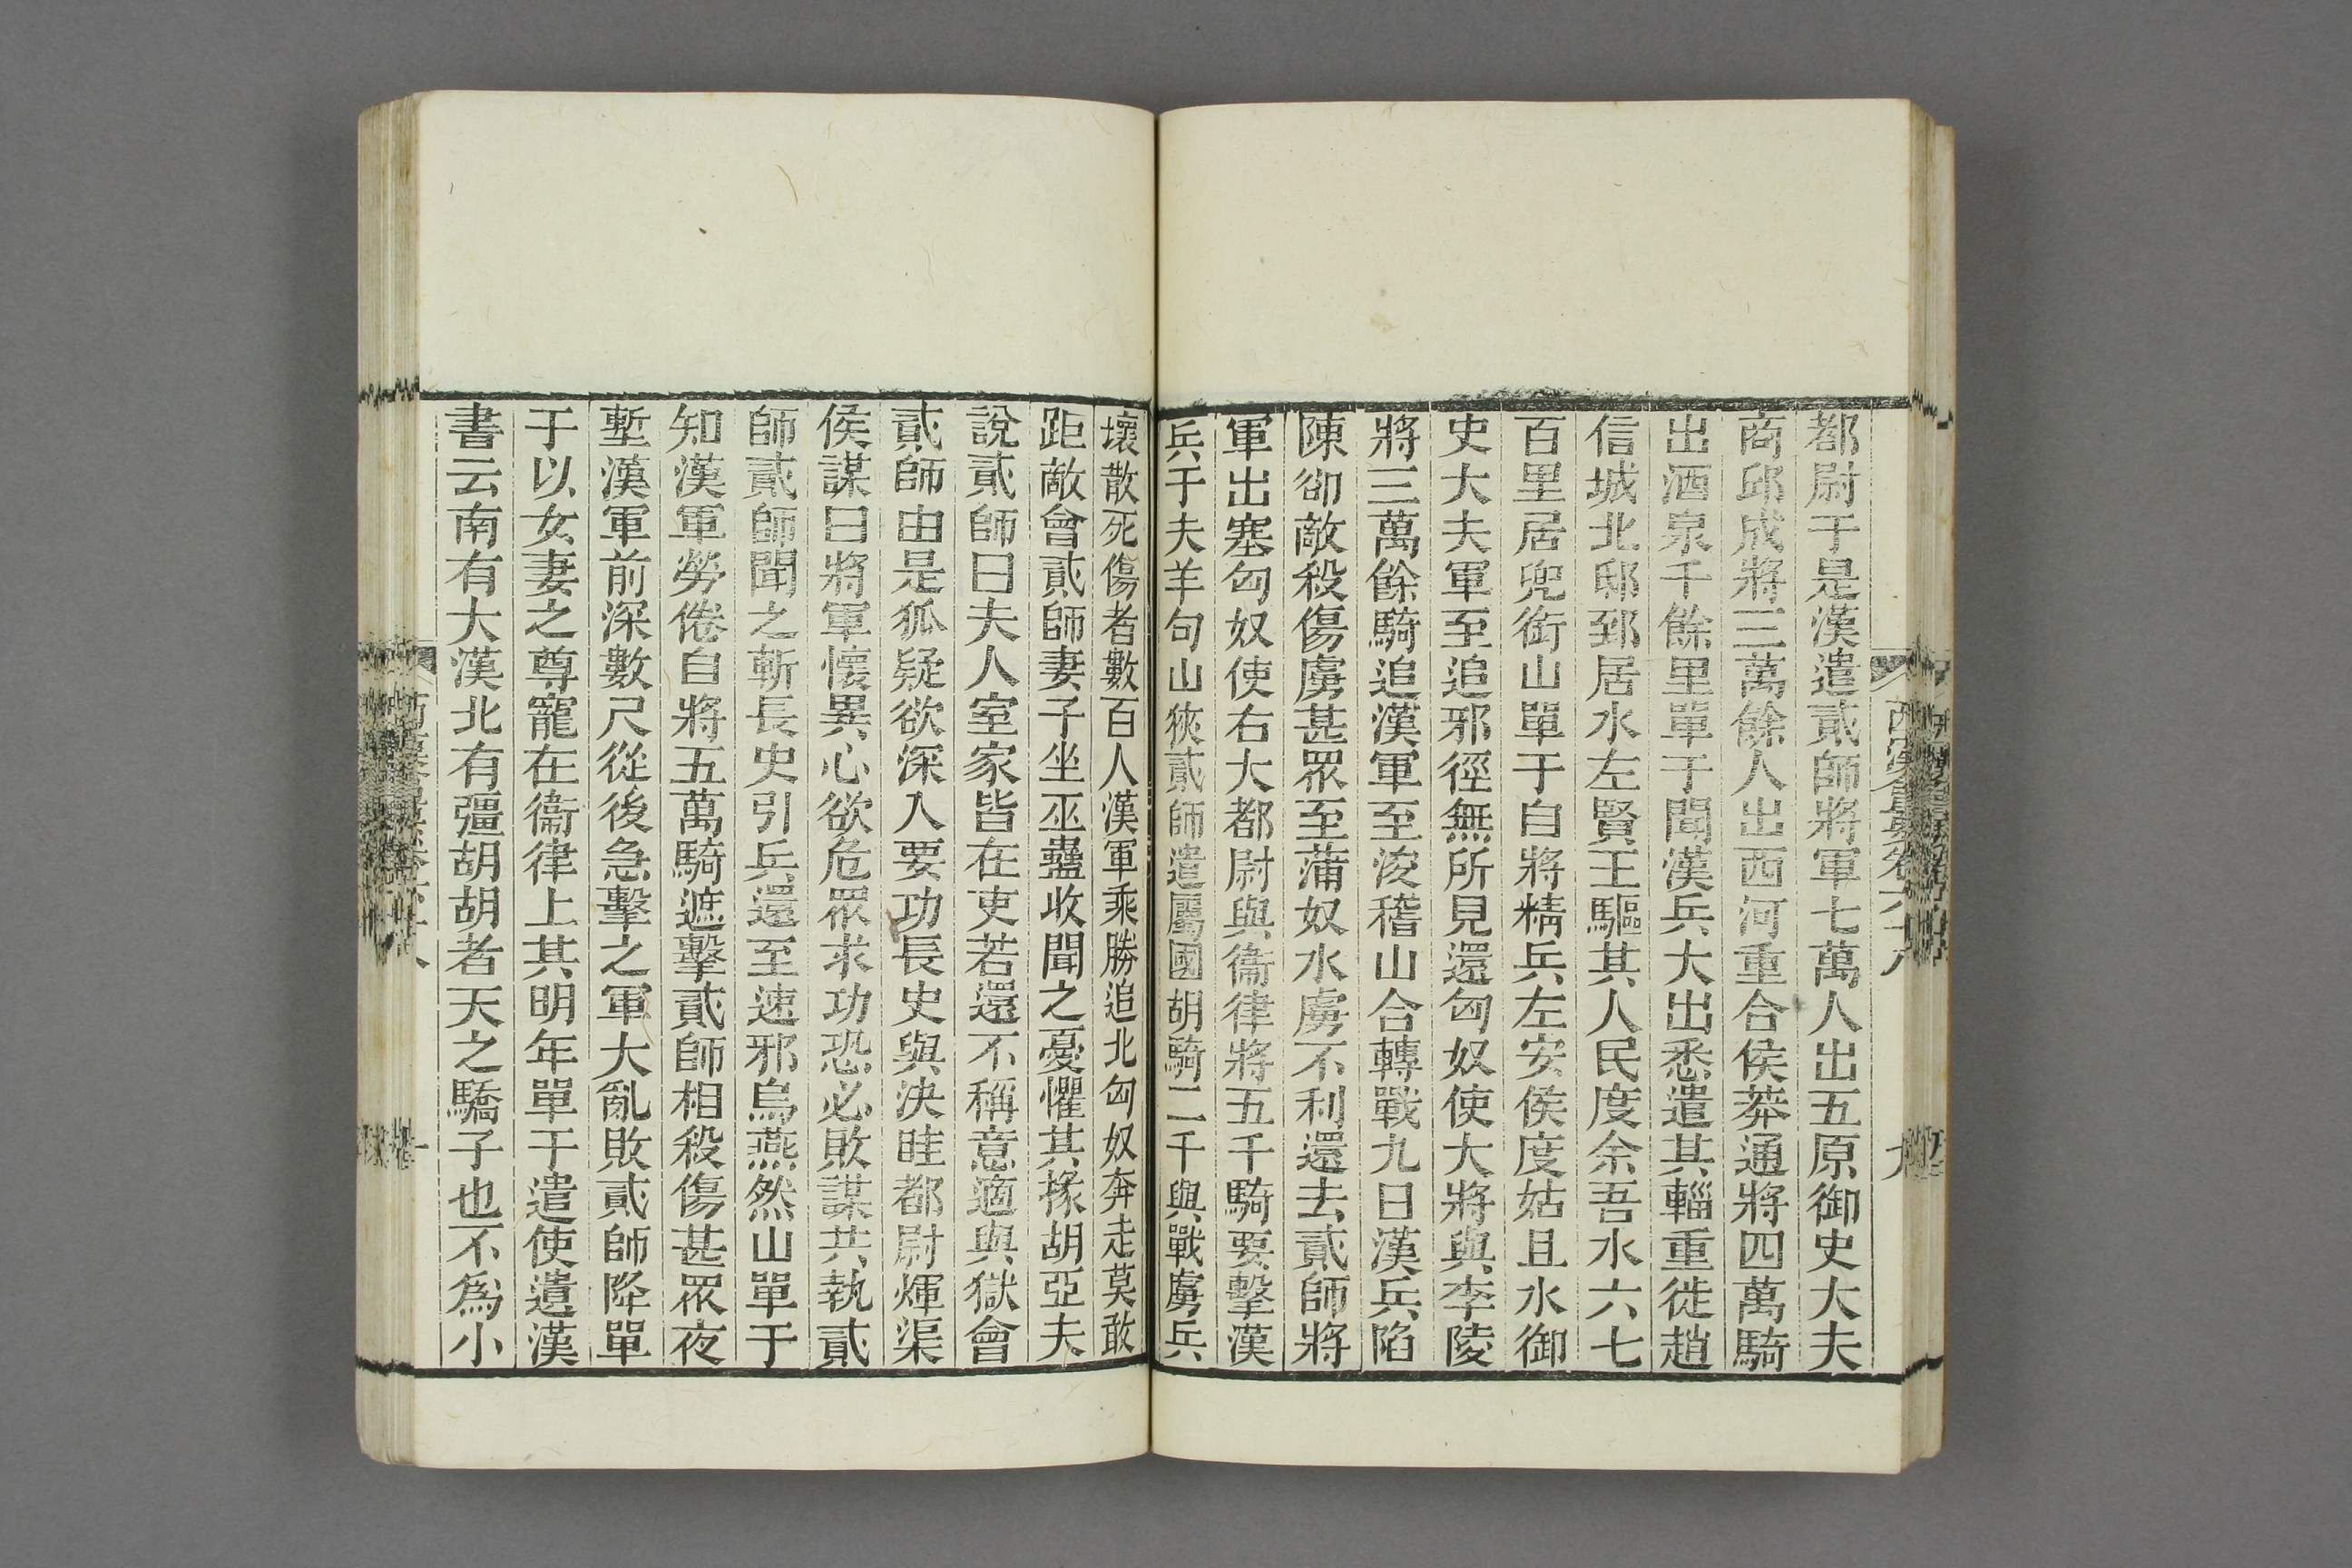 都尉于是漢遣貳師將軍七萬人出五原御史大夫
商邱成將三萬餘人出西河重合侯莽通將四萬騎
出酒泉千餘里單于聞漢兵大出悉遣其輜重徙趙
信城北邸郅居水左賢王驅其人民度余吾水六七
百里居兜銜山單于自將精兵左安侯度姑且水御
史大夫軍至追邪徑無所見還匈奴使大將與李陵
將三萬餘騎追漢軍至浚稽山合轉戰九日漢兵陷
陳卻敵殺傷虜甚眾至蒲奴水虜不利還去貳師將
軍出塞匈奴使右大都尉與衞律將五千騎要擊漢
兵于夫羊句山狹貳師遣屬國胡騎二千與戰虜兵
壞散死傷者數百人漢軍乘勝追北匈奴奔走莫敢
距敵會貳師妻子坐巫蠱收聞之憂懼其掾胡亞夫
說貳師曰夫人室家皆在吏若還不稱意適與獄會
貳師由是狐疑欲深入要功長史與決眭都尉煇渠
侯謀曰將軍懷異心欲危眾求功恐必敗謀共執貳
師貳師聞之斬長史引兵還至速邪烏燕然山單于
知漢軍勞倦自將五萬騎遮擊貳師相殺傷甚眾夜
塹漢軍前深數尺從後急擊之軍大亂敗貳師降單
于以女妻之尊寵在衞律上其明年單于遣使遺漢
書云南有大漢北有彊胡胡者天之驕子也不爲小